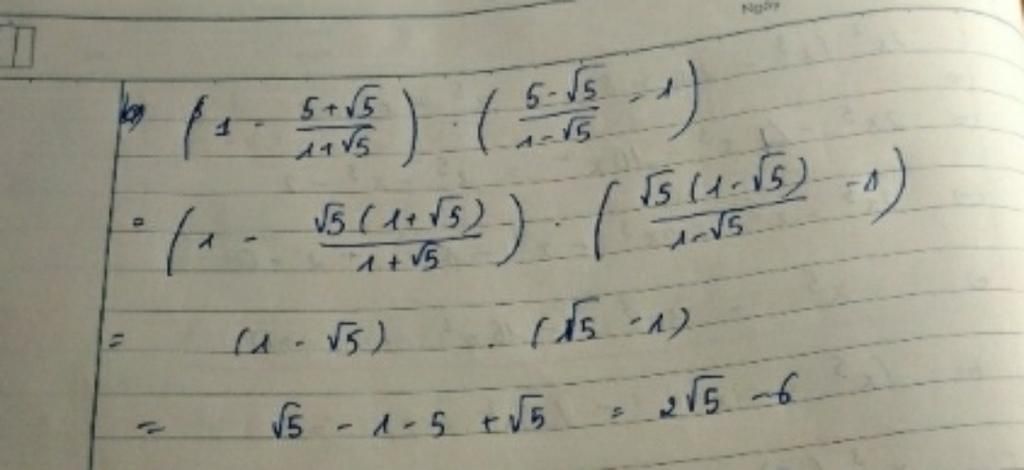 Ngày
b) (1 - (5+√5)/(1+√5)) . ((5-√5)/(1-√5) - 1)
= (1 - √5(1+√5)/(1+√5)) . (√5(1-√5)/(1-√5) - 1)
= (1 - √5) . (√5 - 1)
= √5 - 1 - 5 + √5 = 2√5 - 6